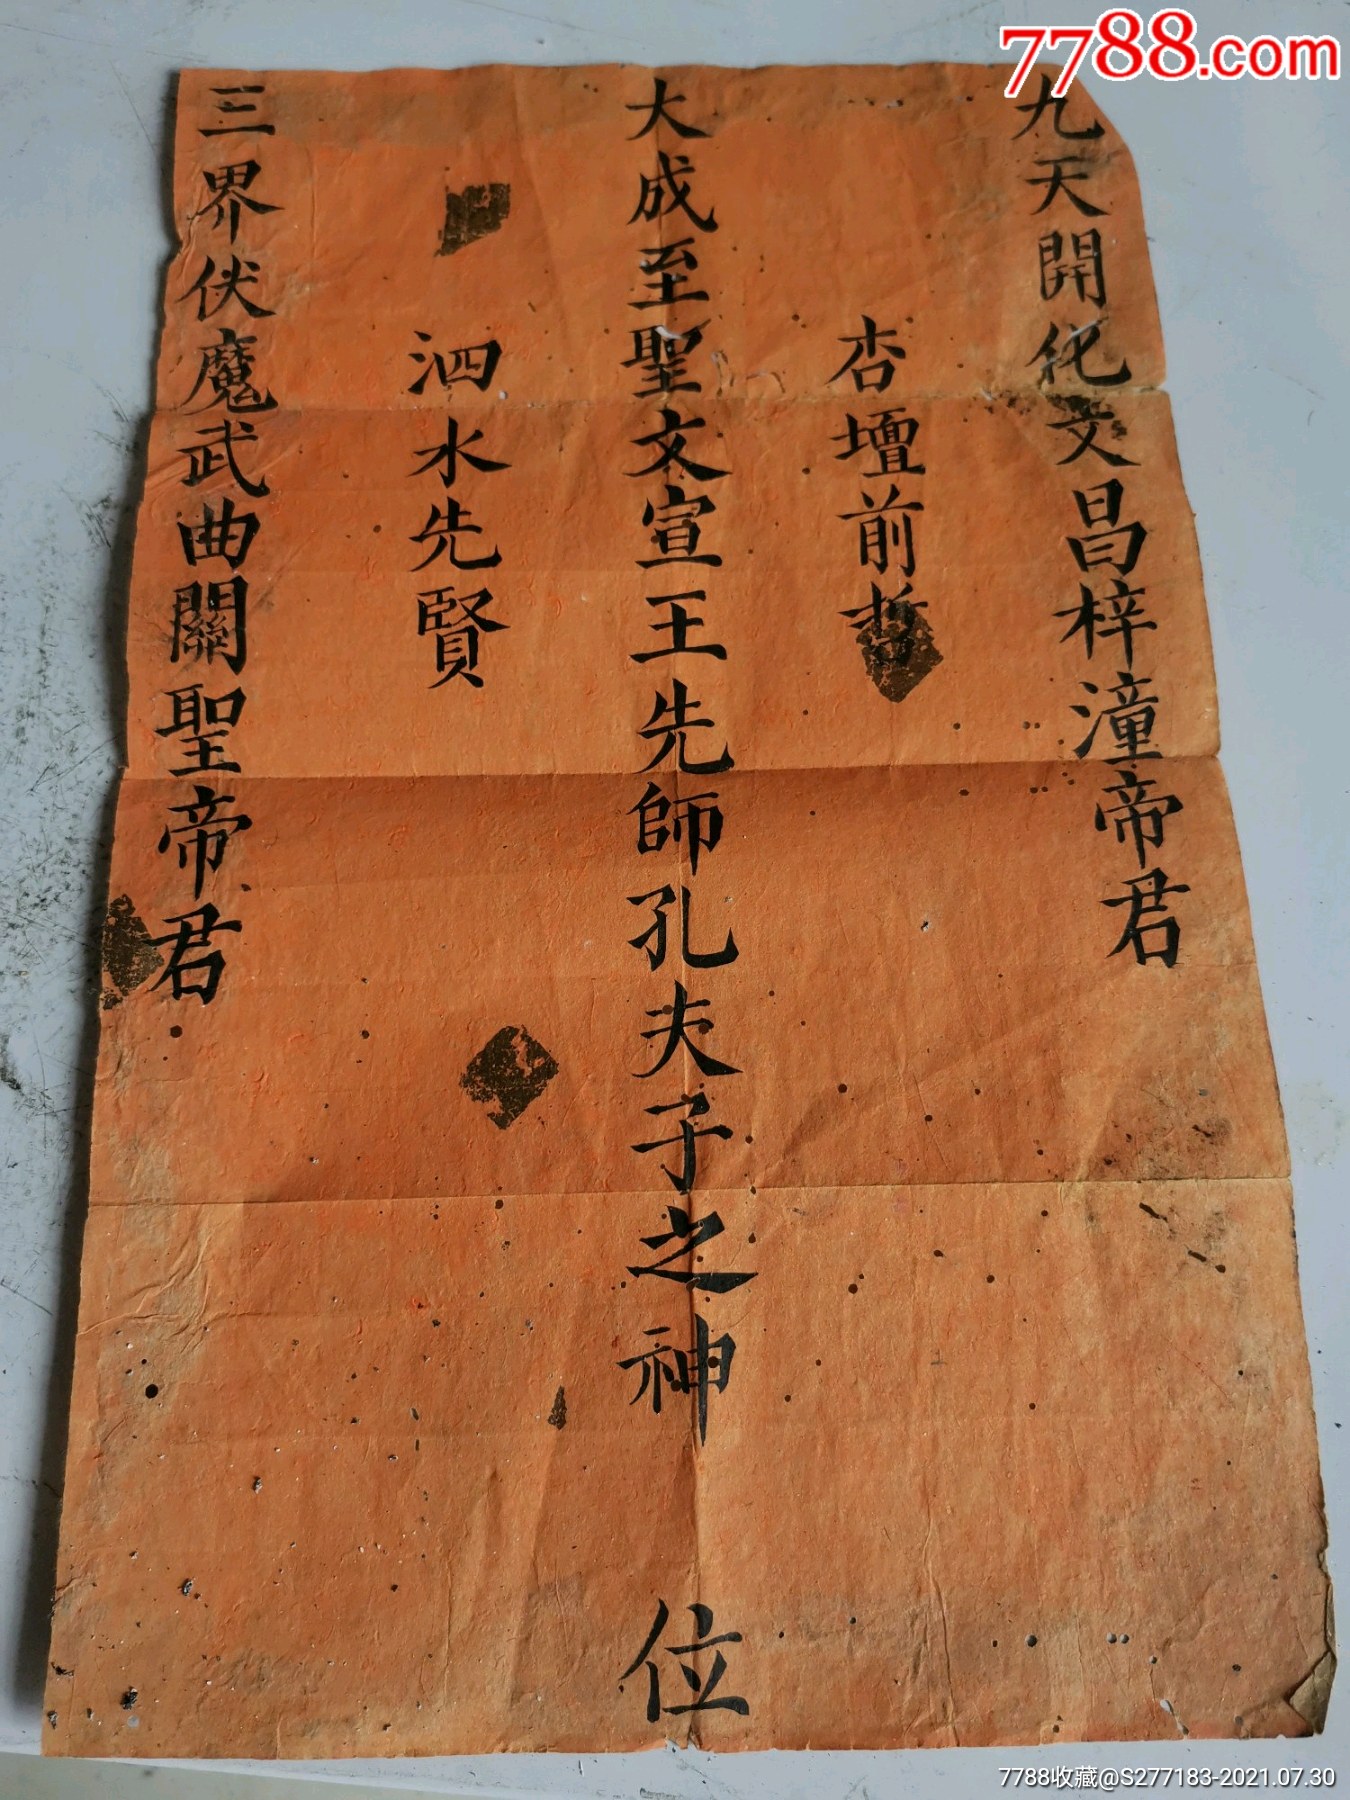 7788.com
九天開化文昌梓潼帝君
杏壇前哲
大成至聖文宣王先師孔夫子之神位
泗水先賢
三界伏魔武曲關聖帝君
7788收藏@S277183-2021.07.30